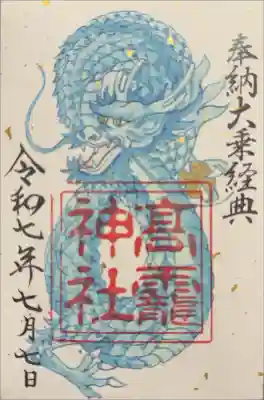 奉納大乗経典
高龗
神社
令和七年七月七日